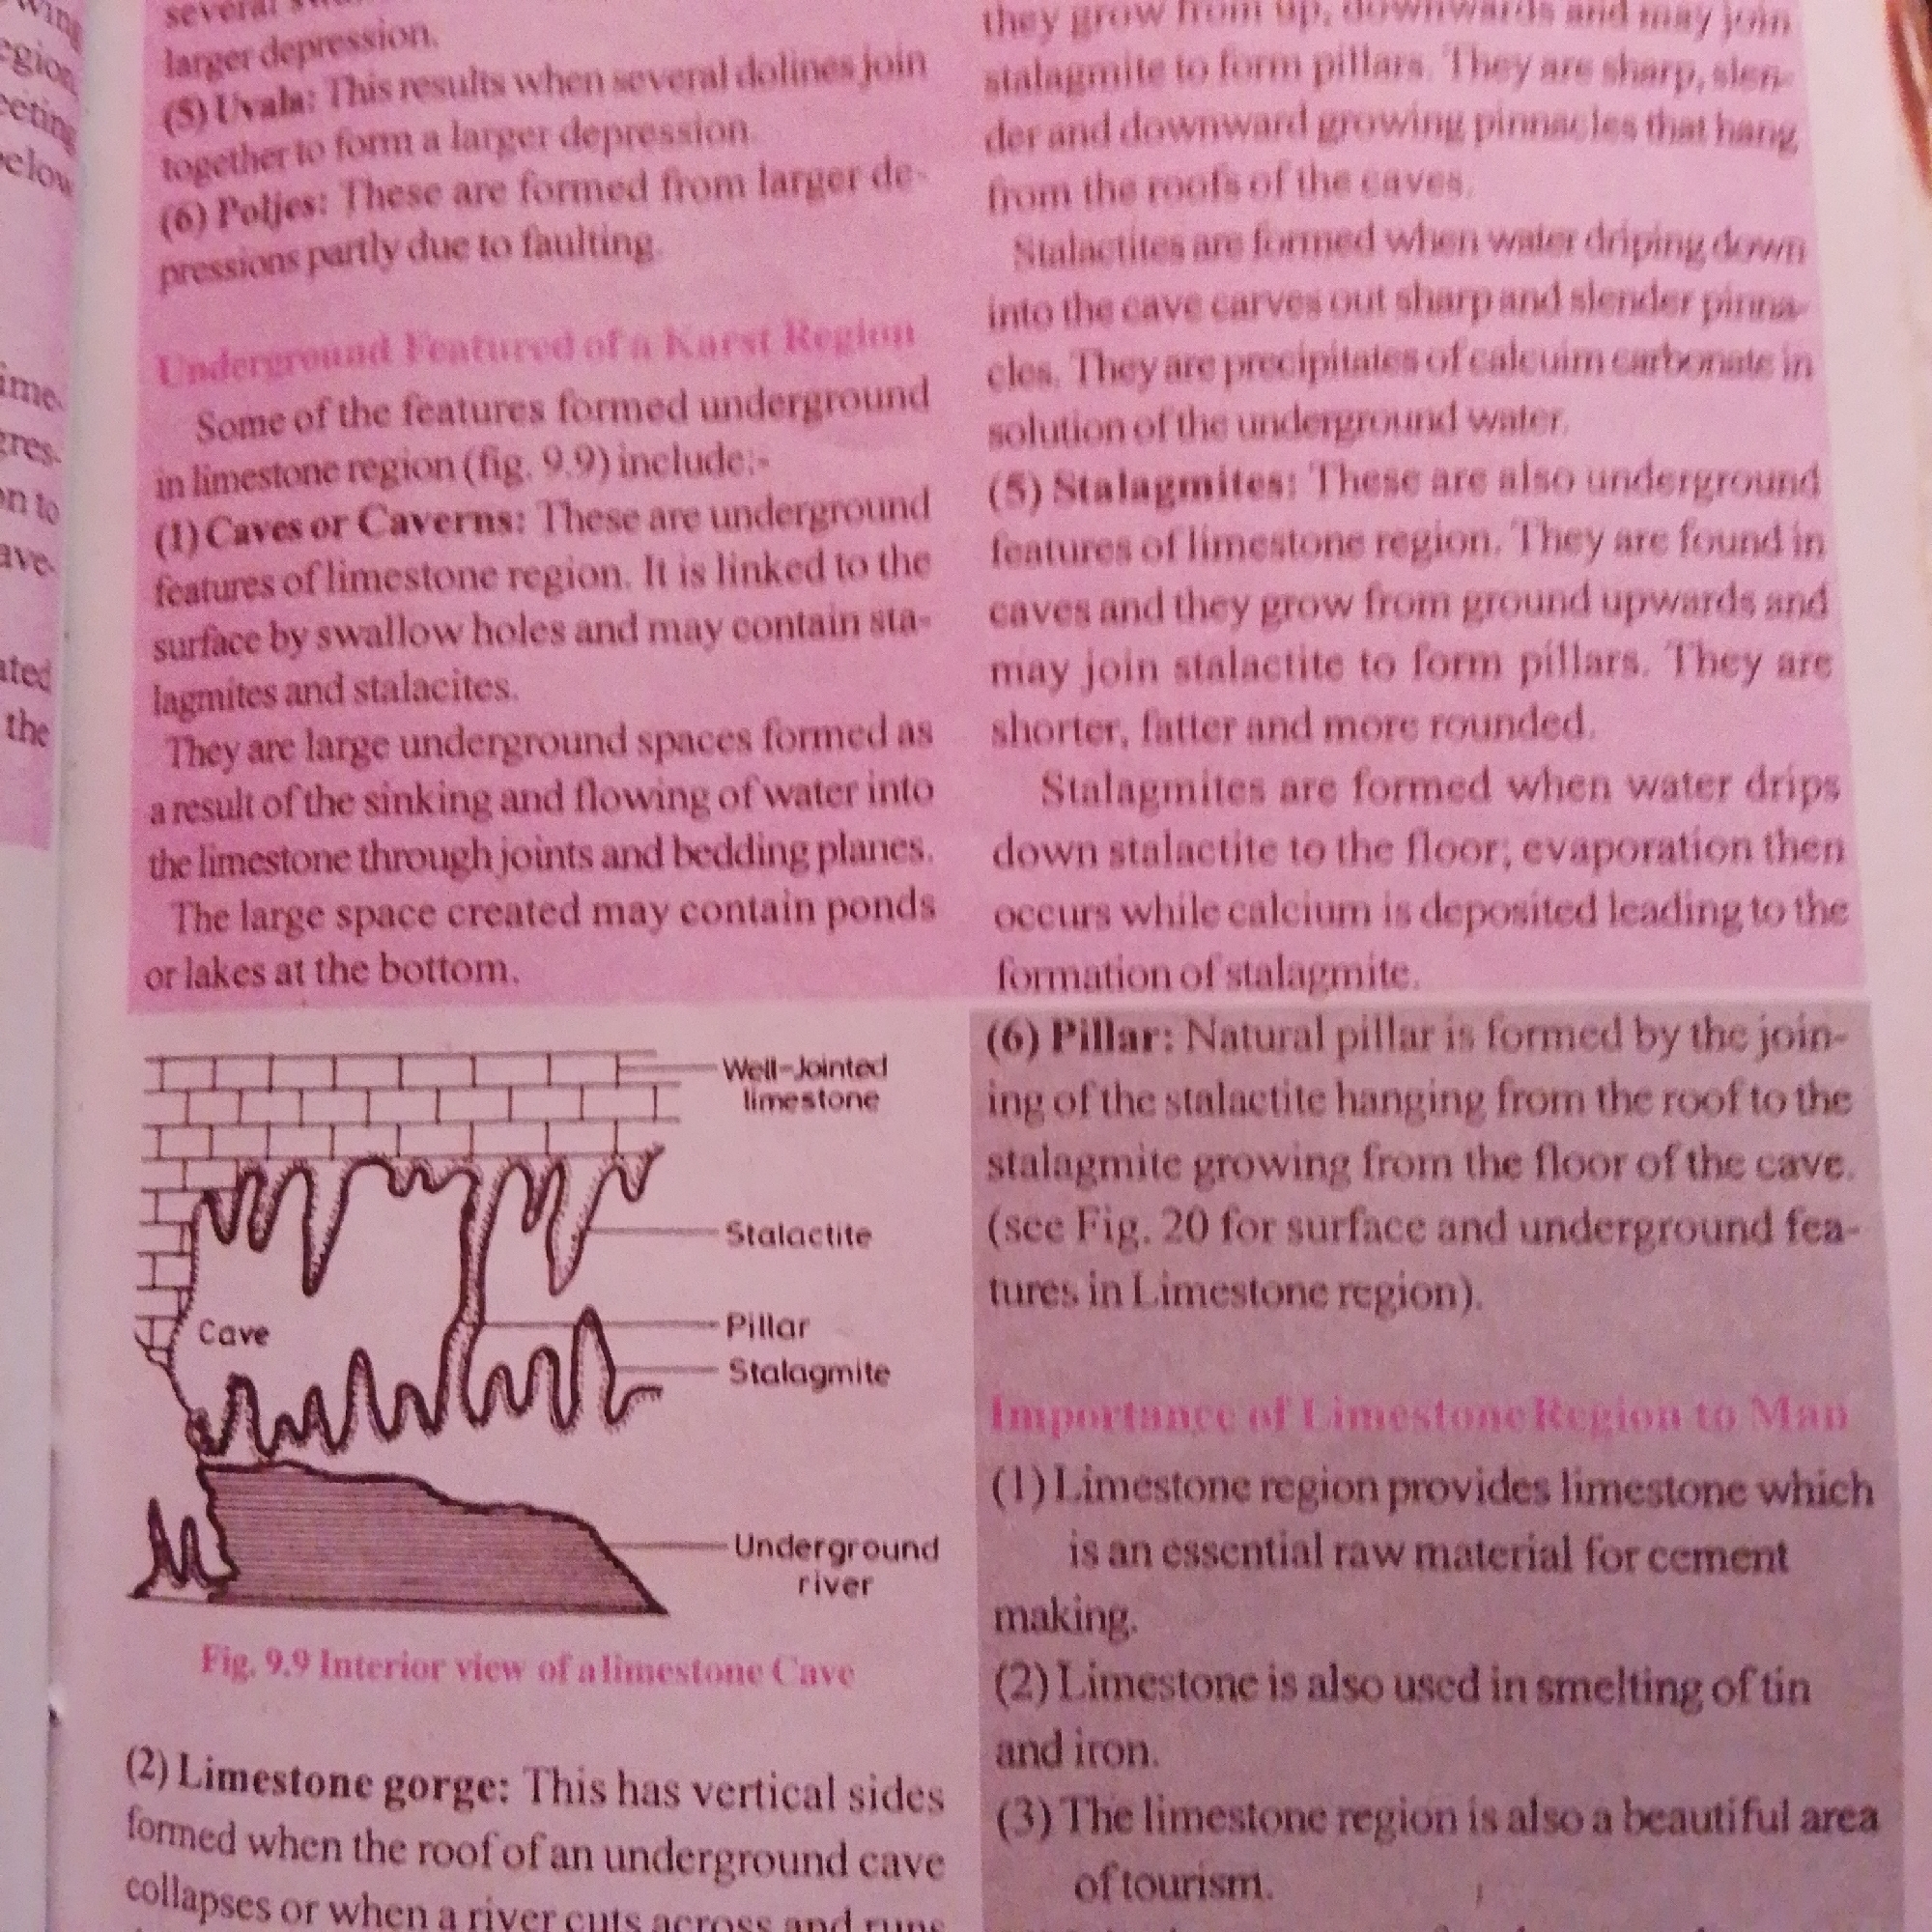 wing
egion
eeting
below
ime-
gres-
on to
ave-
ated
the
several
larger depression.
(5) Uvala: This results when several dolines join
together to form a larger depression.
(6) Poljes: These are formed from larger de-
pressions partly due to faulting.
Underground Featured of a Karst Region
Some of the features formed underground
in limestone region (fig. 9.9) include:-
(1) Caves or Caverns: These are underground
features of limestone region. It is linked to the
surface by swallow holes and may contain sta-
lagmites and stalacites.
They are large underground spaces formed as
a result of the sinking and flowing of water into
the limestone through joints and bedding planes.
The large space created may contain ponds
or lakes at the bottom.
Well-Jointed
limestone
Stalactite
Pillar
Cave
Stalagmite
Underground
river
Fig. 9.9 Interior view of a limestone Cave
(2) Limestone gorge: This has vertical sides
formed when the roof of an underground cave
collapses or when a river cuts across and runs
they grow from up, downwards and may join
stalagmite to form pillars. They are sharp, slen-
der and downward growing pinnacles that hang
from the roofs of the caves.
Stalactites are formed when water driping down
into the cave carves out sharp and slender pinna-
cles. They are precipitates of calcuim carbonate in
solution of the underground water.
(5) Stalagmites: These are also underground
features of limestone region. They are found in
caves and they grow from ground upwards and
may join stalactite to form pillars. They are
shorter, fatter and more rounded.
Stalagmites are formed when water drips
down stalactite to the floor; evaporation then
occurs while calcium is deposited leading to the
formation of stalagmite.
(6) Pillar: Natural pillar is formed by the join-
ing of the stalactite hanging from the roof to the
stalagmite growing from the floor of the cave.
(see Fig. 20 for surface and underground fea-
tures in Limestone region).
Importance of Limestone Region to Man
(1) Limestone region provides limestone which
is an essential raw material for cement
making.
(2) Limestone is also used in smelting of tin
and iron.
(3) The limestone region is also a beautiful area
of tourism.